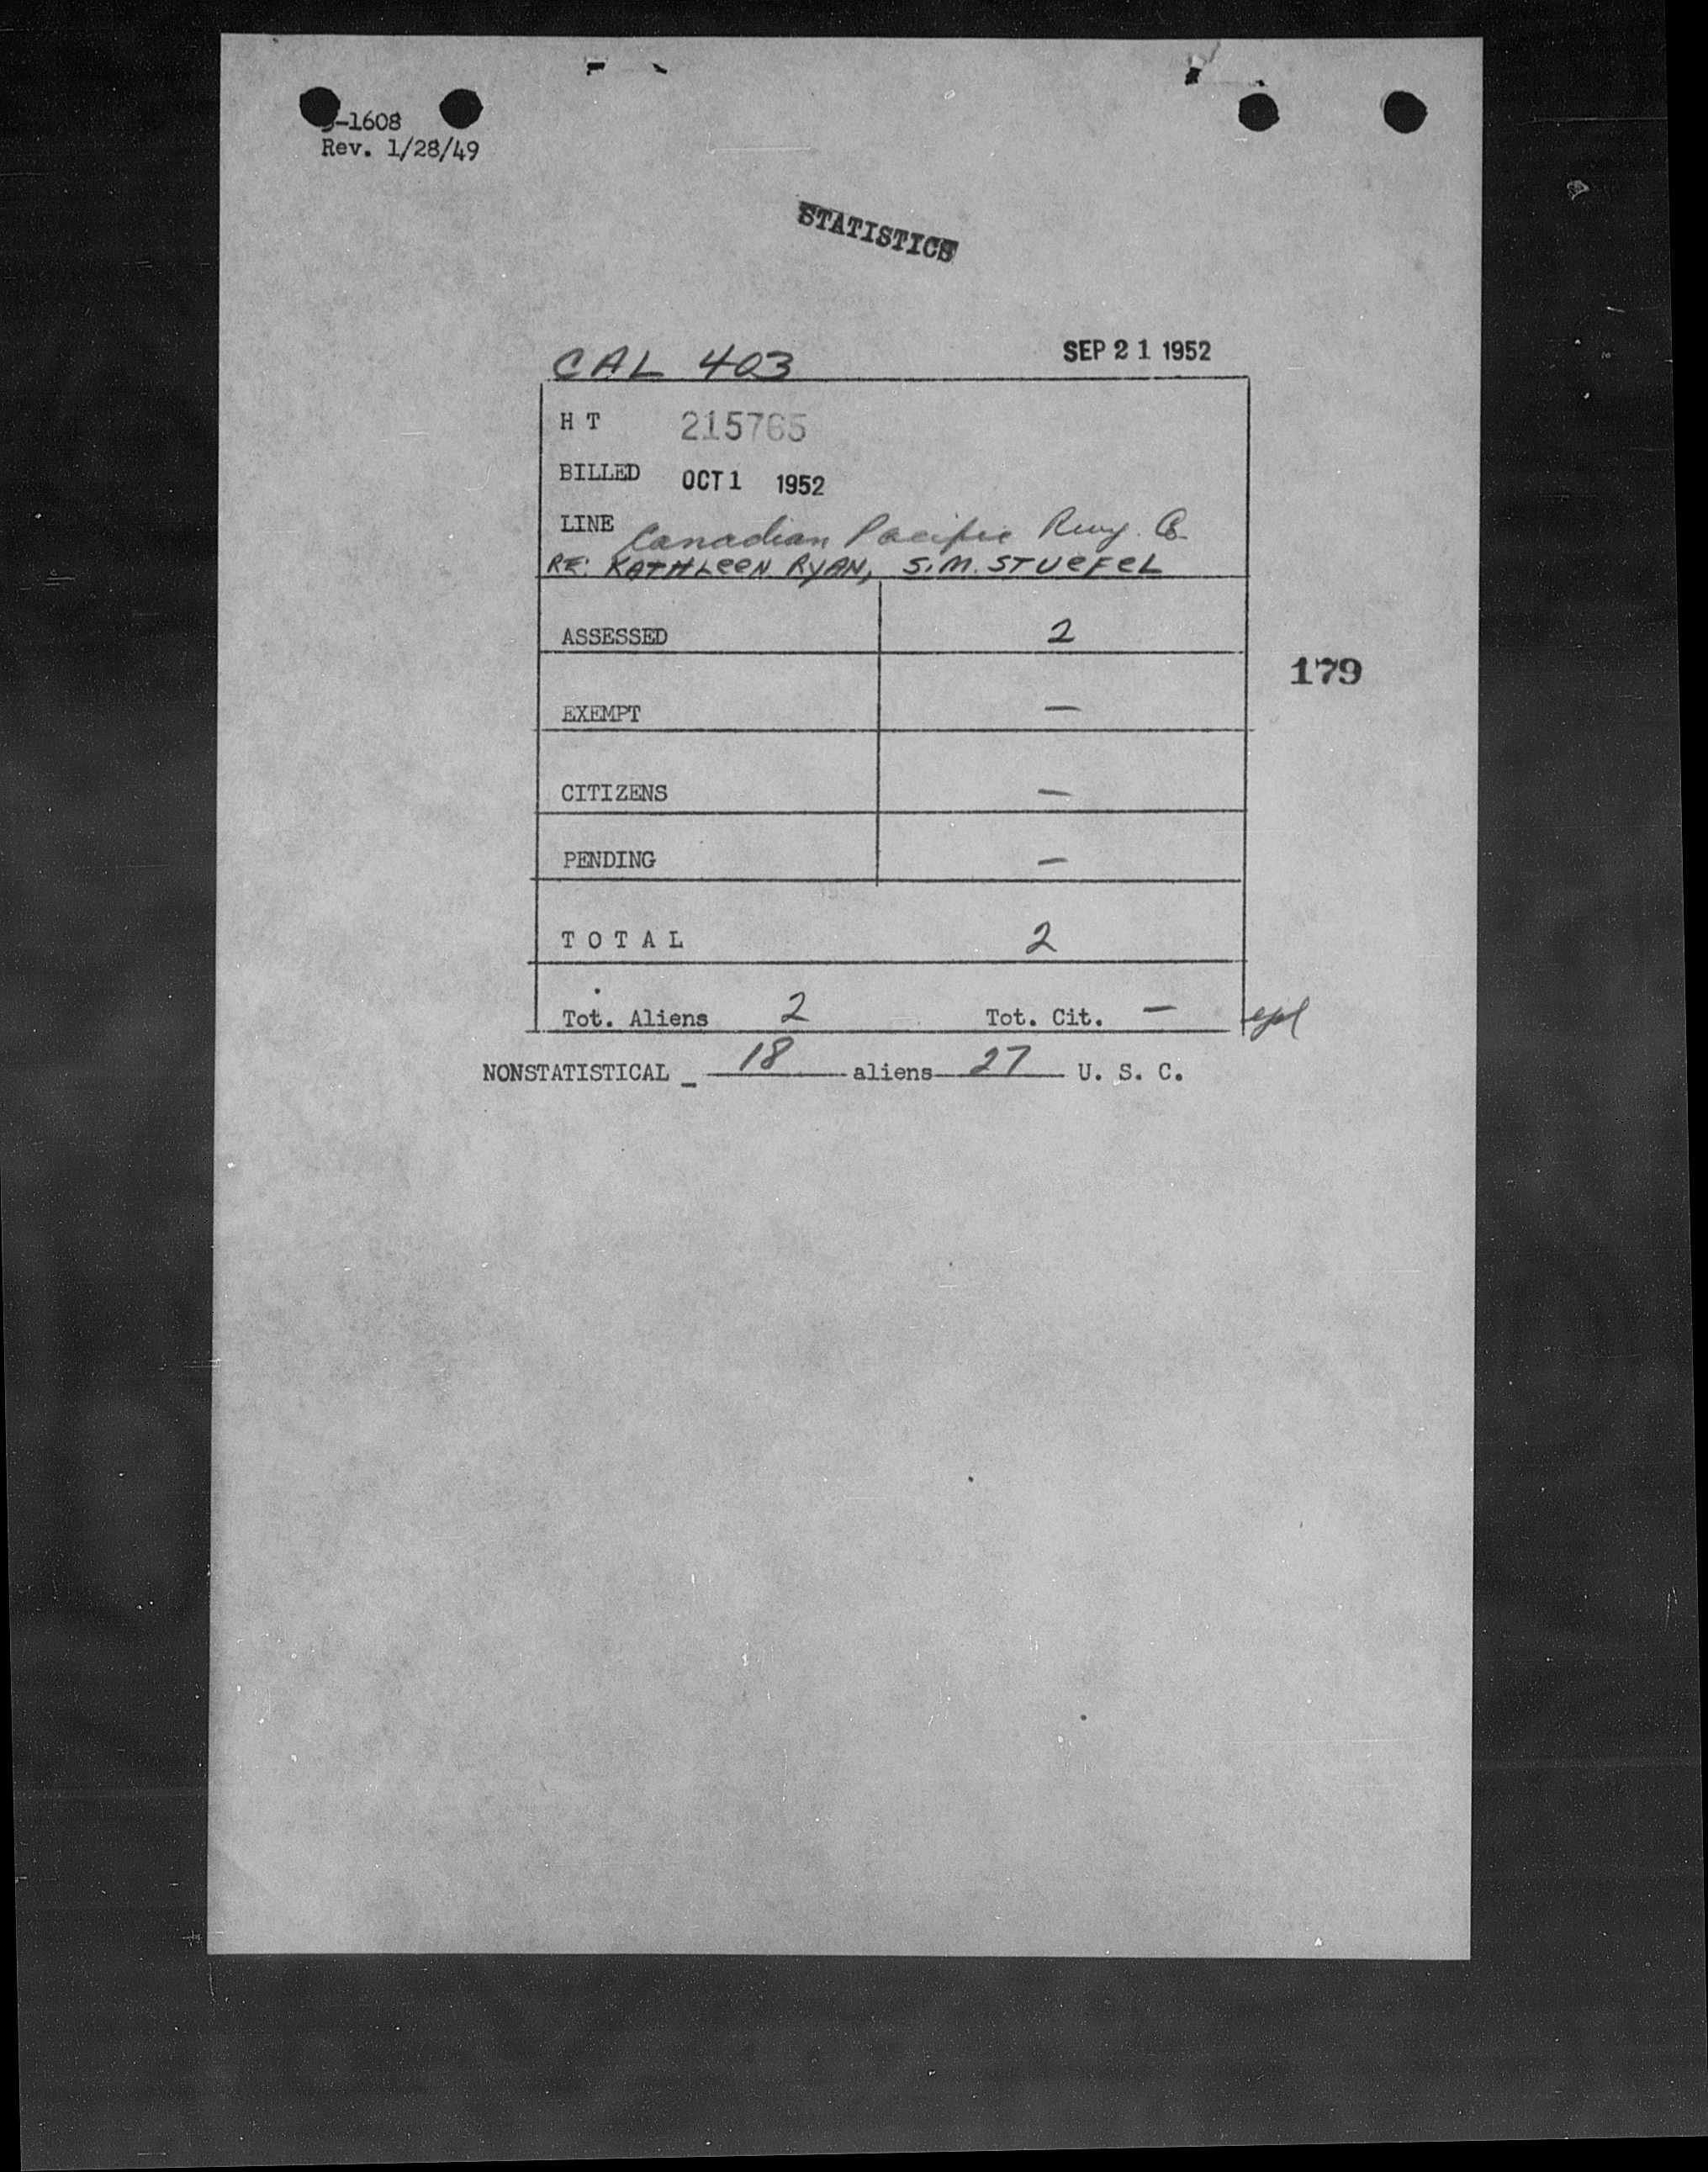 -1608
Rev. 1/28/49
STATISTICS
CAL 403 SEP 21 1952
H T 215765
BILLED OCT 1 1952
LINE Canadian Pacific Rwy. Co.
RE: KATHLEEN RYAN, S.M. STUEFEL
ASSESSED 2
179
EXEMPT —
CITIZENS —
PENDING —
T O T A L 2
Tot. Aliens 2 Tot. Cit. —
NONSTATISTICAL _ 18 aliens 27 U. S. C.